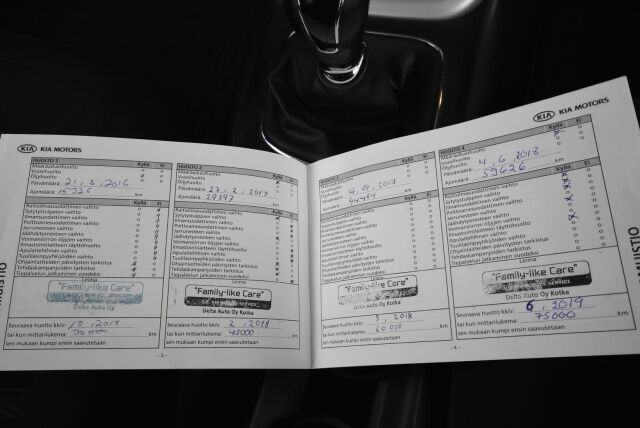 KIA MOTORS
HUOLTO 1 Kyllä Ei
Määräaikaishuolto
Vuosihuolto
Öljyhuolto
Päivämäärä: 21.6.2016
Ajomäärä: 15326 km
Kyllä Ei
Raitisilmasuodattimen vaihto
Sytytystulppien vaihto
Ilmansuodattimen vaihto
Polttoainesuodattimen vaihto
Jarrunesteen vaihto
Jäähdytysnesteen vaihto
Voimansiirron öljyjen vaihto
Ilmastointilaitteen täyttöhuolto
Apulaitehihnan vaihto
Tuulilasipyyhkijöiden vaihto
Ohjainlaitteiden päivitysten tarkistus
Tehdaskampanjoiden tarkistus
Tiepalvelun jatkaminen vuodeksi
Leima
"Family-like Care"
Delta Auto Oy Kotka
Seuraava huolto kk/v:
tai kun mittarilukema: 30000 km
sen mukaan kumpi ensin saavutetaan
- 3 -
HUOLTO 2 Kyllä Ei
Määräaikaishuolto
Vuosihuolto
Öljyhuolto
Päivämäärä: 27.2.2017
Ajomäärä: 29397 km
Kyllä Ei
Raitisilmasuodattimen vaihto
Sytytystulppien vaihto
Ilmansuodattimen vaihto
Polttoainesuodattimen vaihto
Jarrunesteen vaihto
Jäähdytysnesteen vaihto
Voimansiirron öljyjen vaihto
Ilmastointilaitteen täyttöhuolto
Apulaitehihnan vaihto
Tuulilasipyyhkijöiden vaihto
Ohjainlaitteiden päivitysten tarkistus
Tehdaskampanjoiden tarkistus
Tiepalvelun jatkaminen vuodeksi
Leima
"Family-like Care"
Delta Auto Oy Kotka
Seuraava huolto kk/v: 2.2018
tai kun mittarilukema: 45000 km
sen mukaan kumpi ensin saavutetaan
HUOLTO 3 Kyllä Ei
Määräaikaishuolto
Vuosihuolto
Öljyhuolto
Päivämäärä:
Ajomäärä: 44464 km
Kyllä Ei
Raitisilmasuodattimen vaihto
Sytytystulppien vaihto
Ilmansuodattimen vaihto
Polttoainesuodattimen vaihto
Jarrunesteen vaihto
Jäähdytysnesteen vaihto
Voimansiirron öljyjen vaihto
Ilmastointilaitteen täyttöhuolto
Apulaitehihnan vaihto
Tuulilasipyyhkijöiden vaihto
Ohjainlaitteiden päivitysten tarkistus
Tehdaskampanjoiden tarkistus
Tiepalvelun jatkaminen vuodeksi
Leima
"Family-like Care"
Delta Auto Oy Kotka
Seuraava huolto kk/v: 9.2018
tai kun mittarilukema: 60 000 km
sen mukaan kumpi ensin saavutetaan
KIA MOTORS
HUOLTO 4 Kyllä Ei
Määräaikaishuolto
Vuosihuolto
Öljyhuolto
Päivämäärä: 4.6.2018
Ajomäärä: 59626 km
Kyllä Ei
Raitisilmasuodattimen vaihto
Sytytystulppien vaihto
Ilmansuodattimen vaihto
Polttoainesuodattimen vaihto
Jarrunesteen vaihto
Jäähdytysnesteen vaihto
Voimansiirron öljyjen vaihto
Ilmastointilaitteen täyttöhuolto
Apulaitehihnan vaihto
Tuulilasipyyhkijöiden vaihto
Ohjainlaitteiden päivitysten tarkistus
Tehdaskampanjoiden tarkistus
Tiepalvelun jatkaminen vuodeksi
Leima
"Family-like Care"
Delta Auto Oy Kotka
Seuraava huolto kk/v: 6.2019
tai kun mittarilukema: 75000 km
sen mukaan kumpi ensin saavutetaan
- 4 -